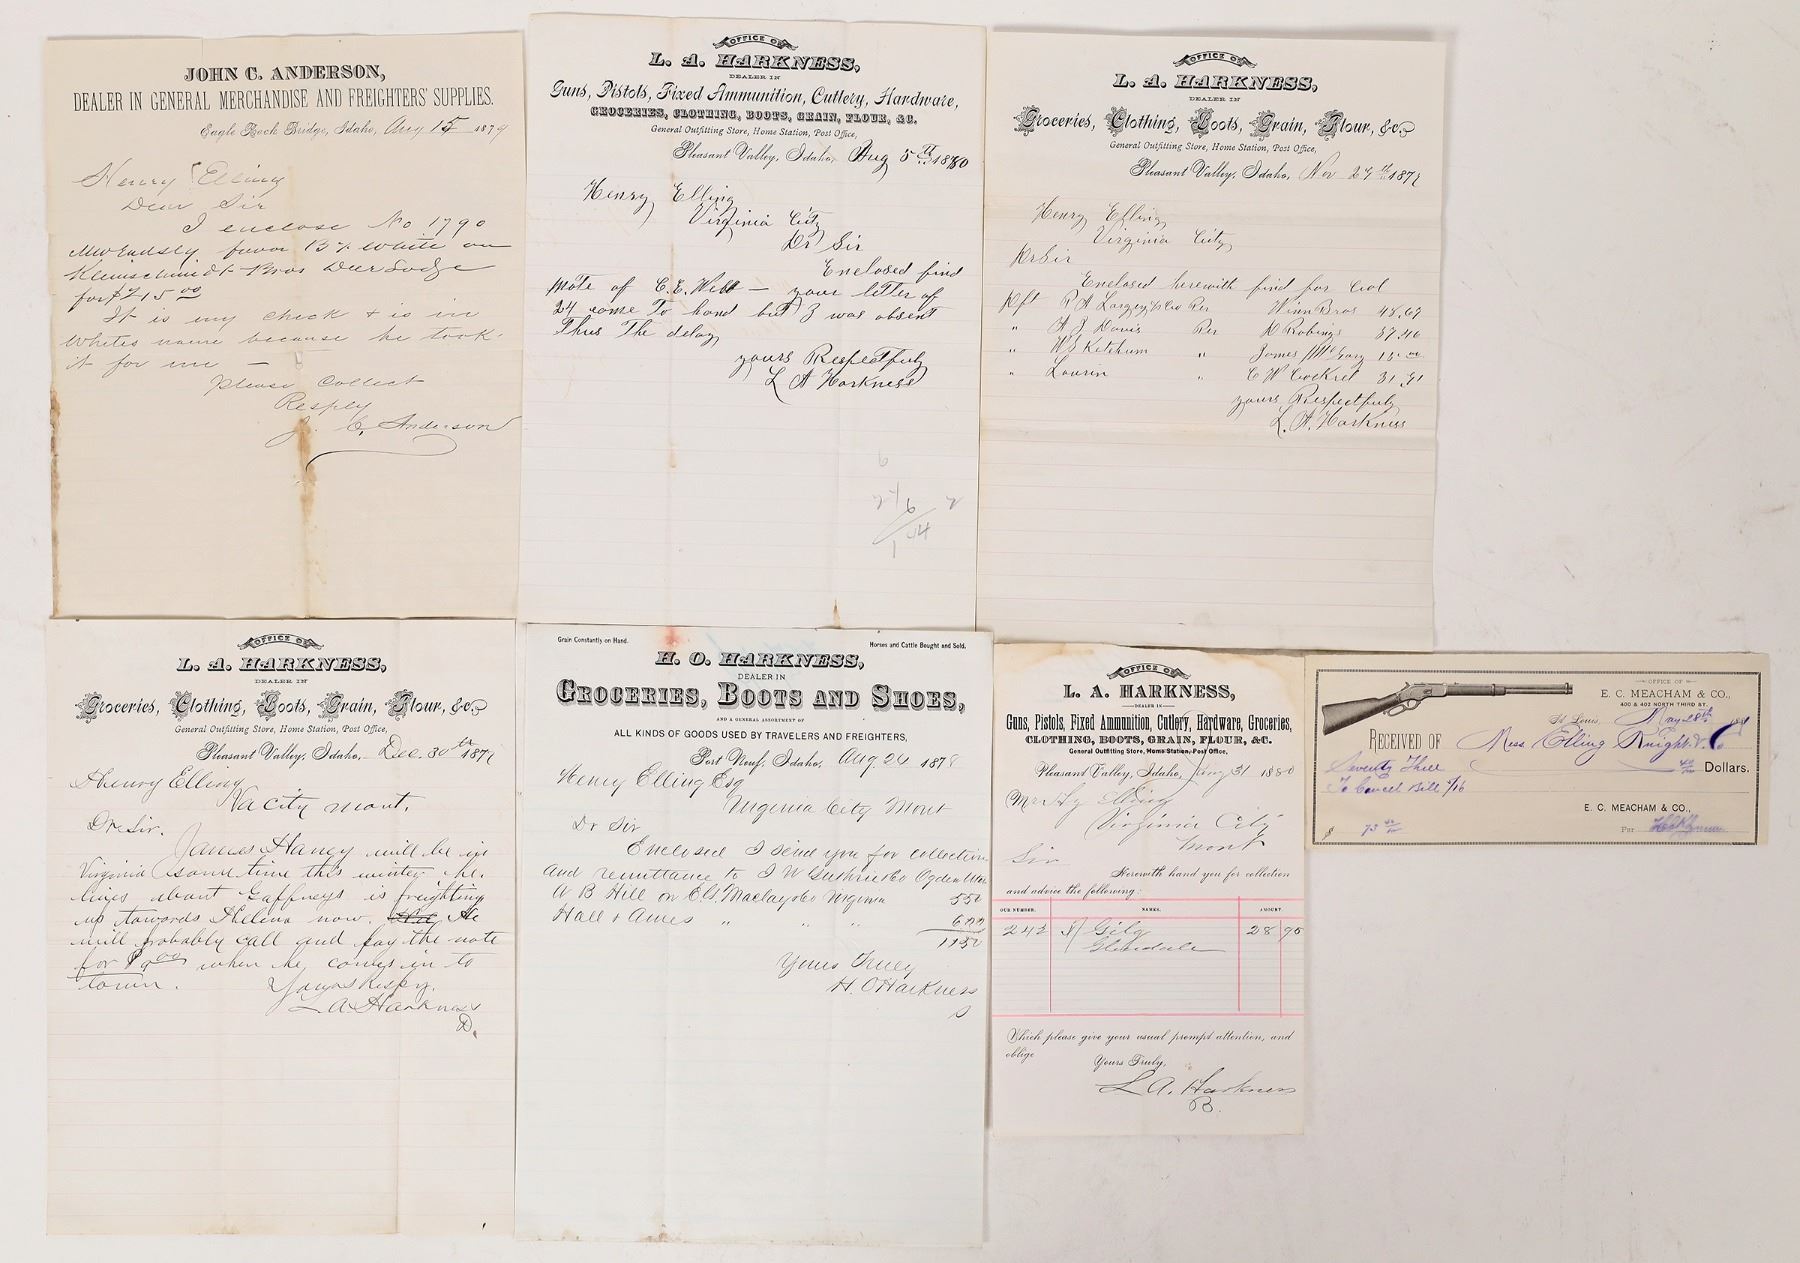 JOHN C. ANDERSON,
DEALER IN GENERAL MERCHANDISE AND FREIGHTERS' SUPPLIES.
Eagle Rock Bridge, Idaho, Aug 15 1879
Henry Elling
Dear Sir
I enclose No 1790
favor B. White on
Kleinschmidt Bros Deer Lodge
for $215 00
It is my check & is in
Whites name because he took
it for me —
Please Collect
Resply
J. C. Anderson
OFFICE OF
L. A. HARKNESS,
DEALER IN
Guns, Pistols, Fixed Ammunition, Cuttery, Hardware,
GROCERIES, CLOTHING, BOOTS, GRAIN, FLOUR, &C.
General Outfitting Store, Home Station, Post Office,
Pleasant Valley, Idaho, Aug 5th 1880
Henry Elling
Virginia City
Dr Sir
Enclosed find
note of C. E. Webb — your letter of
24 came To hand but I was absent
Thus The delay
yours Respectfully
L A Harkness
6
OFFICE OF
L. A. HARKNESS,
DEALER IN
Groceries, Clothing, Boots, Grain, Flour, &c.
General Outfitting Store, Home Station, Post Office,
Pleasant Valley, Idaho, Nov 29th 1879
Henry Elling
Virginia City
Dr Sir
Enclosed herewith find for Col
Dft R A Largey & Co Per Winn Bros 48.67
" A J Davis Per D Robings 37.40
" W S Ketchum " James 15.00
" Lauren " C W Cockrel 31.91
yours Respectfully
L. A. Harkness
OFFICE OF
L. A. HARKNESS,
DEALER IN
Groceries, Clothing, Boots, Grain, Flour, &c.
General Outfitting Store, Home Station, Post Office,
Pleasant Valley, Idaho, Dec. 30th 1879
Henry Elling
Va City Mont.
Dr Sir.
James Haney will be in
Virginia some time this winter he
lives about Gaffneys is freighting
up towards Helena now. He
will probably call and pay the note
for when he comes in to
town.
Yours Respy.
L A Harkness
D.
Grain Constantly on Hand.
Horses and Cattle Bought and Sold.
H. O. HARKNESS,
DEALER IN
GROCERIES, BOOTS AND SHOES,
AND A GENERAL ASSORTMENT OF
ALL KINDS OF GOODS USED BY TRAVELERS AND FREIGHTERS,
Port Neuf, Idaho, Aug. 24 1878
Henry Elling Esq
Virginia City Mont
Dr Sir
Enclosed I send you for collection
and remittance to J W Guthrie & Co Ogden
W B Hill on E. S. Maclay & Co Virginia 550
Hall & Ames " " " 600
1150
Yours Truly
H. O Harkness
S
OFFICE OF
L. A. HARKNESS,
DEALER IN
Guns, Pistols, Fixed Ammunition, Cutlery, Hardware, Groceries,
CLOTHING, BOOTS, GRAIN, FLOUR, &C.
General Outfitting Store, Home Station, Post Office,
Pleasant Valley, Idaho, Jany 31 1880
Mr Hy Elling
Virginia City
Mont
Sir
Herewith hand you for collection
and advice the following:
OUR NUMBER. NAMES. AMOUNT.
242 Gilg 28 95
Glendale
Which please give your usual prompt attention, and
oblige
Yours Truly,
L A. Harkness
B.
OFFICE OF
E. C. MEACHAM & CO.,
400 & 402 NORTH THIRD ST.
St. Louis, May 28th 188
RECEIVED OF Mess Elling Knight & Co
Seventy Three 50/100 Dollars.
To Cancel Bill 5/16
E. C. MEACHAM & CO.,
$ 73 50/100
Per